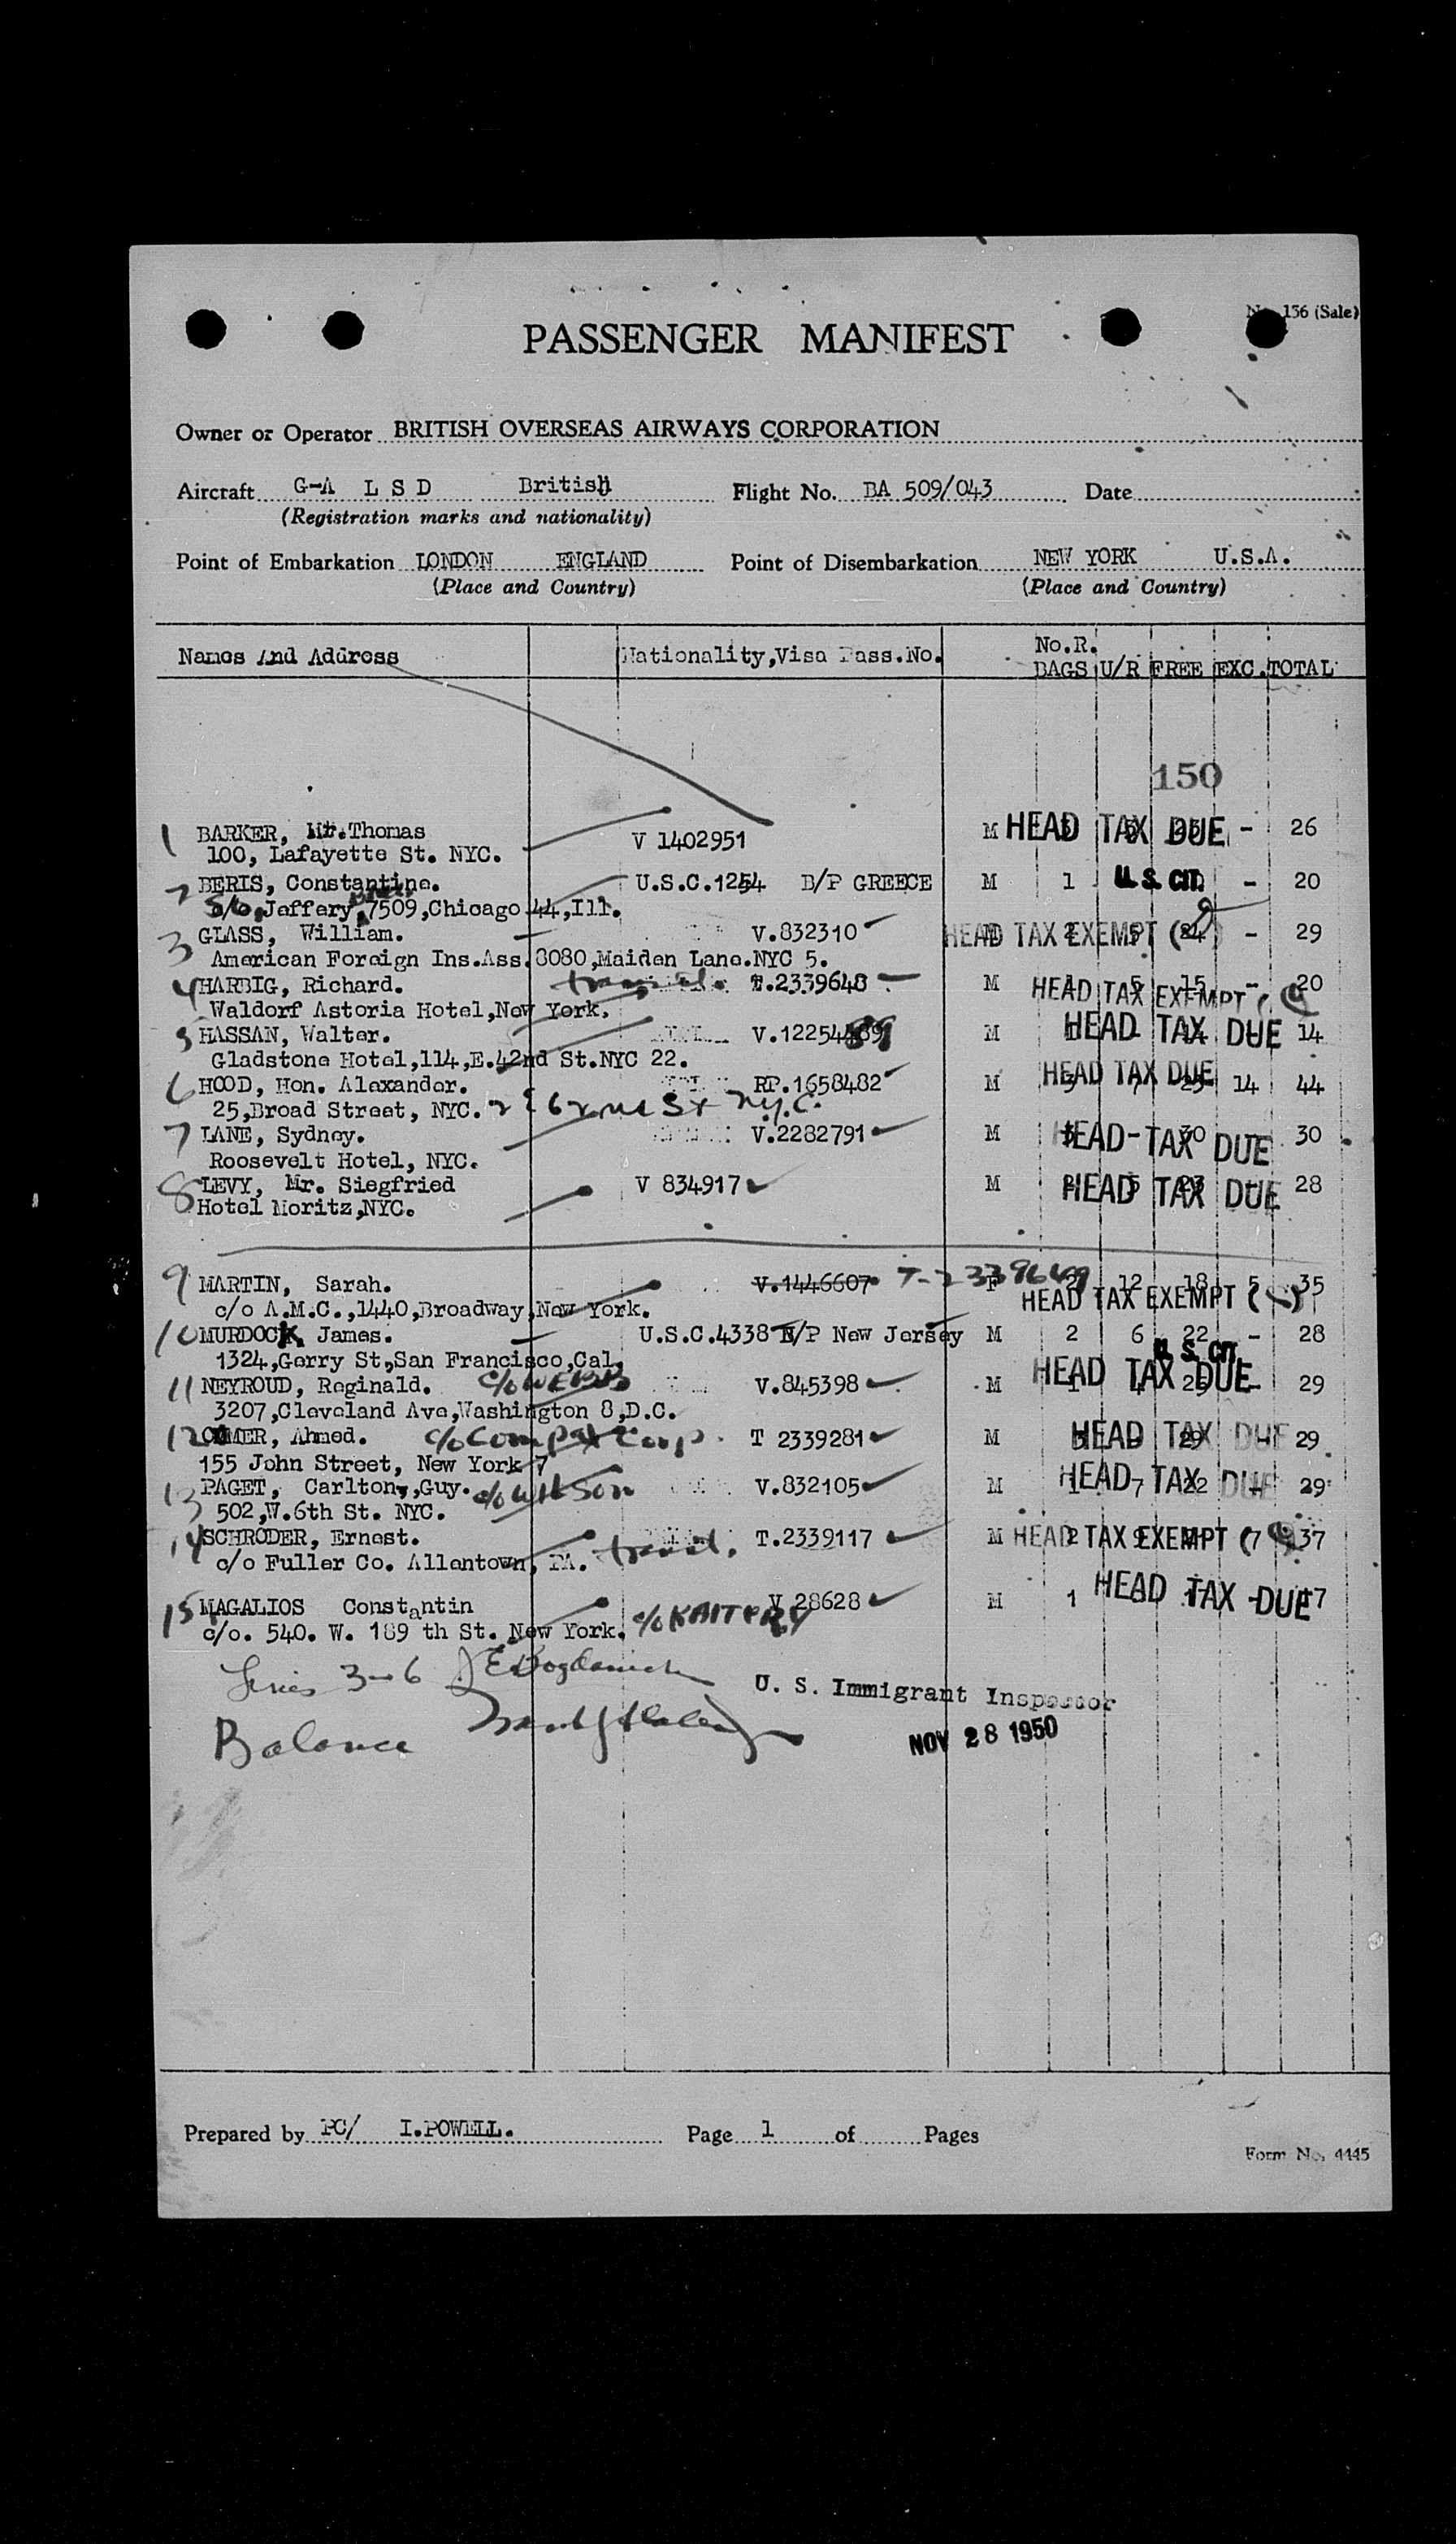 No. 156 (Sale)
PASSENGER MANIFEST
Owner or Operator BRITISH OVERSEAS AIRWAYS CORPORATION
Aircraft G-A L S D British Flight No. BA 509/043 Date
(Registration marks and nationality)
Point of Embarkation LONDON ENGLAND Point of Disembarkation NEW YORK U.S.A.
(Place and Country) (Place and Country)
No.R.
Names And Address Nationality,Visa Pass.No. BAGS U/R FREE EXC. TOTAL
150
1 BARKER, Mr.Thomas V 1402951 M HEAD TAX DUE - 26
100, Lafayette St. NYC.
2 BERIS, Constantine. U.S.C.1254 B/P GREECE M 1 U.S. CIT. - 20
Jeffery,7509,Chicago 44,Ill.
3 GLASS, William. V.832310 M HEAD TAX EXEMPT - 29
American Foreign Ins.Ass.8080,Maiden Lane.NYC 5.
4 HARBIG, Richard. T.2339648 M 1 5 15 - 20 HEAD TAX EXEMPT
Waldorf Astoria Hotel,New York.
5 HASSAN, Walter. M HEAD TAX DUE 14
Gladstone Hotel,114,E.42nd St.NYC 22.
6 HOOD, Hon. Alexander. RP.1658482 M HEAD TAX DUE 14 44
25,Broad Street, NYC. St N.Y.C.
7 LANE, Sydney. V.2282791 M - 30 HEAD TAX DUE 30
Roosevelt Hotel, NYC.
8 LEVY, Mr. Siegfried V 834917 M HEAD TAX DUE 28
Hotel Moritz,NYC.
9 MARTIN, Sarah. V.1446607 T-2339649 F 2 12 18 5 35
c/o A.M.C.,1440,Broadway,New York. HEAD TAX EXEMPT
10 MURDOCK, James. U.S.C.4338 B/P New Jersey M 2 6 22 - 28
1324,Gerry St,San Francisco,Cal. U.S. CIT.
11 NEYROUD, Reginald. c/o WEBB V.845398 M HEAD TAX DUE 29
3207,Cleveland Ave,Washington 8,D.C.
12 OMER, Ahmed. c/o Compax Corp. T 2339281 M HEAD TAX DUE 29
155 John Street, New York 7
13 PAGET, Carlton,Guy. c/o WILSON V.832105 M HEAD TAX DUE 29
502,W.6th St. NYC.
14 SCHRODER, Ernest. T.2339117 M HEAD TAX EXEMPT 37
c/o Fuller Co. Allentown, PA.
15 MAGALIOS Constantin V 28628 M 1 HEAD TAX DUE
c/o. 540. W. 189 th St. New York.
3-6
U. S. Immigrant Inspector
Balance
NOV 28 1950
Prepared by PC/ I.POWELL. Page 1 of Pages
Form No. 4445